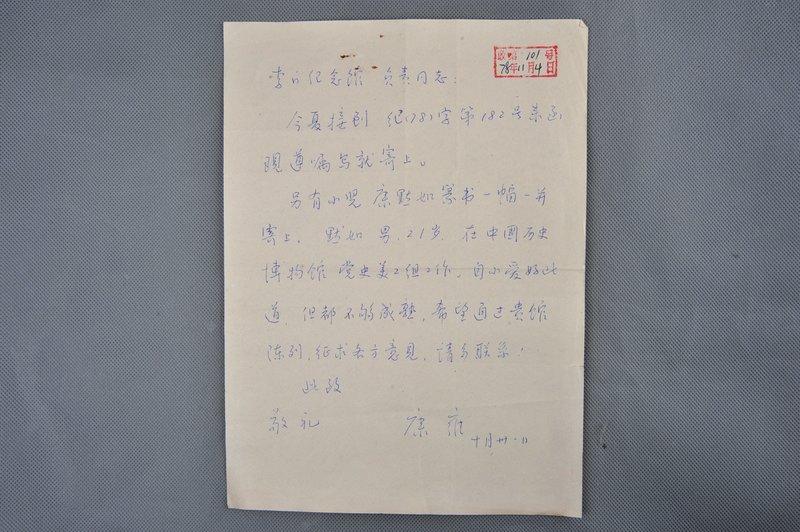 收信 101 号
78年11月4日
李白纪念馆 负责同志:
今夏接到 纪(78)字第182号来函
现遵嘱写就寄上。
另有小儿 康默如篆书一幅一并
寄上。默如 男,21岁,在中国历史
博物馆 党史美工组工作,自小爱好此
道,但都不够成熟,希望通过贵馆
陈列,征求各方意见,请多联系。
此致
敬礼 康雍
十月卅一日